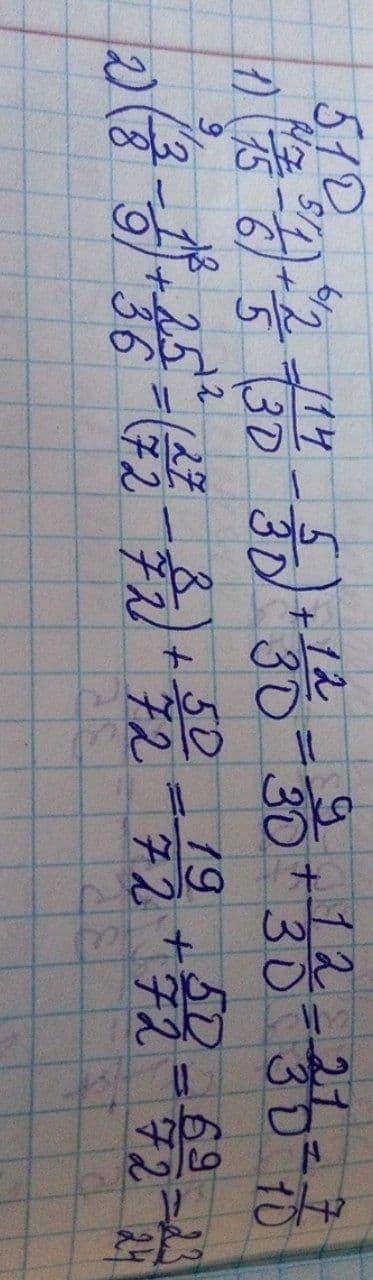 510
1) (²⁾7/15 - ⁵⁾1/6) + ⁶⁾2/5 = (14/30 - 5/30) + 12/30 = 9/30 + 12/30 = 21/30 = 7/10
2) (⁹⁾3/8 - 1⁾⁸/9) + 25⁾²/36 = (27/72 - 8/72) + 50/72 = 19/72 + 50/72 = 69/72 = 23/24